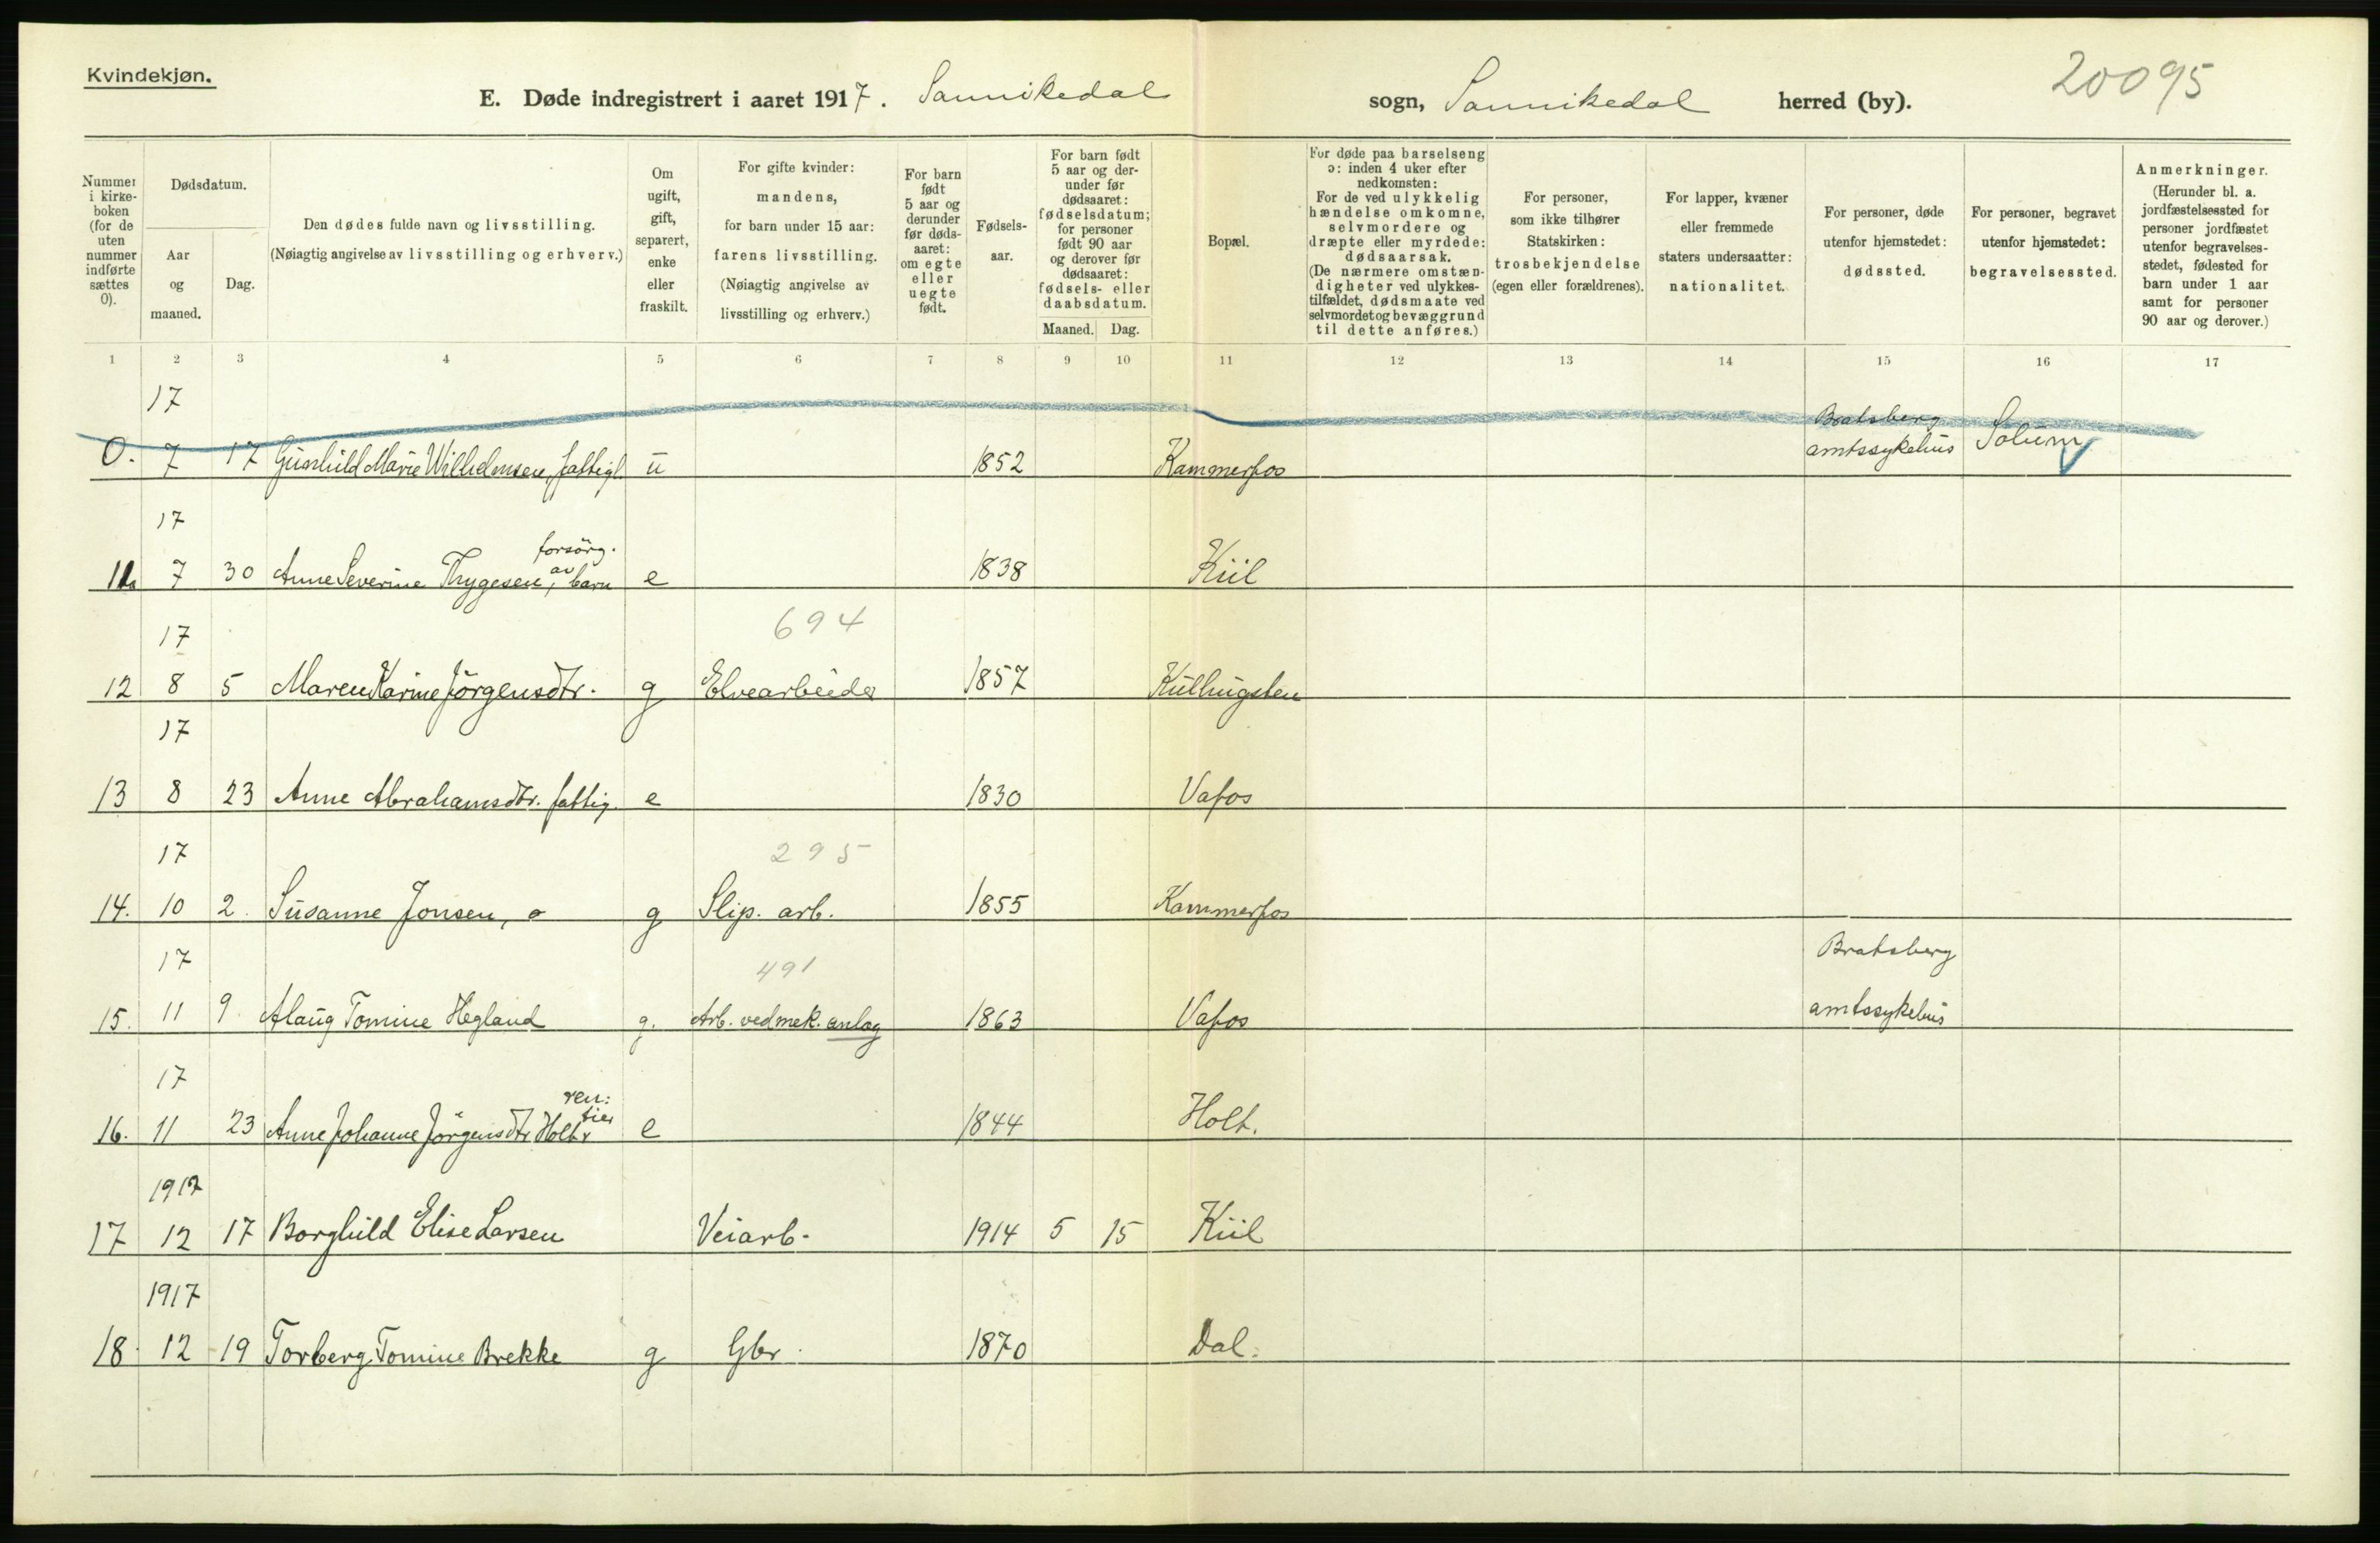 Kvindekjøn.
E. Døde indregistrert i aaret 1917. Sannikedal sogn, Sannikedal herred (by).
20095
Nummer i kirkeboken (for de uten nummer indførte sættes 0).
Dødsdatum.
Aar og maaned.
Dag.
Den dødes fulde navn og livsstilling.
(Nøiagtig angivelse av livsstilling og erhverv.)
Om ugift, gift, separert, enke eller fraskilt.
For gifte kvinder: mandens, for barn under 15 aar: farens livsstilling. (Nøiagtig angivelse av livsstilling og erhverv.)
For barn født 5 aar og derunder før dødsaaret: om egte eller uegte født.
Fødselsaar.
For barn født 5 aar og derunder før dødsaaret: fødselsdatum; for personer født 90 aar og derover før dødsaaret: fødsels- eller daabsdatum.
Maaned. Dag.
Bopæl.
For døde paa barselseng ɔ: inden 4 uker efter nedkomsten: For de ved ulykkelig hændelse omkomne, selvmordere og dræpte eller myrdede: dødsaarsak. (De nærmere omstændigheter ved ulykkestilfældet, dødsmaate ved selvmordet og bevæggrund til dette anføres.)
For personer, som ikke tilhører Statskirken: trosbekjendelse (egen eller forældrenes).
For lapper, kvæner eller fremmede staters undersaatter: nationalitet.
For personer, døde utenfor hjemstedet: dødssted.
For personer, begravet utenfor hjemstedet: begravelsessted.
Anmerkninger. (Herunder bl. a. jordfæstelsessted for personer jordfæstet utenfor begravelsesstedet, fødested for barn under 1 aar samt for personer 90 aar og derover.)
1 2 3 4 5 6 7 8 9 10 11 12 13 14 15 16 17
17
0. 7 17 Gunhild Marie Wilhelmsen, fattigl. u 1852 Kammerfos Bratsberg amtssykehus Solum
17
11 7 30 Anne Severine Thygesen, forsörg. av barn e 1838 Kiil
17 694
12 8 5 Maren Karine Jörgensdtr. g Elvearbeider 1857 Kullhugsten
17
13 8 23 Anne Abrahamsdtr. fattig. e 1830 Vafos
17 295
14. 10 2. Susanne Jonsen, o g Slip. arb. 1855 Kammerfos
17 491
15. 11 9. Alaug Tomine Hegland g. Arb. ved mek. anlæg 1863 Vafos Bratsberg amtssykehus
17
16. 11 23 Anne Johanne Jörgensdtr Holt, rentier e 1844 Holt.
1917
17 12 17 Borghild Elise Larsen Veiarb. 1914 5 15 Kiil
1917
18. 12 19 Torberg Tomine Brekke g Gbr. 1870 Dal.